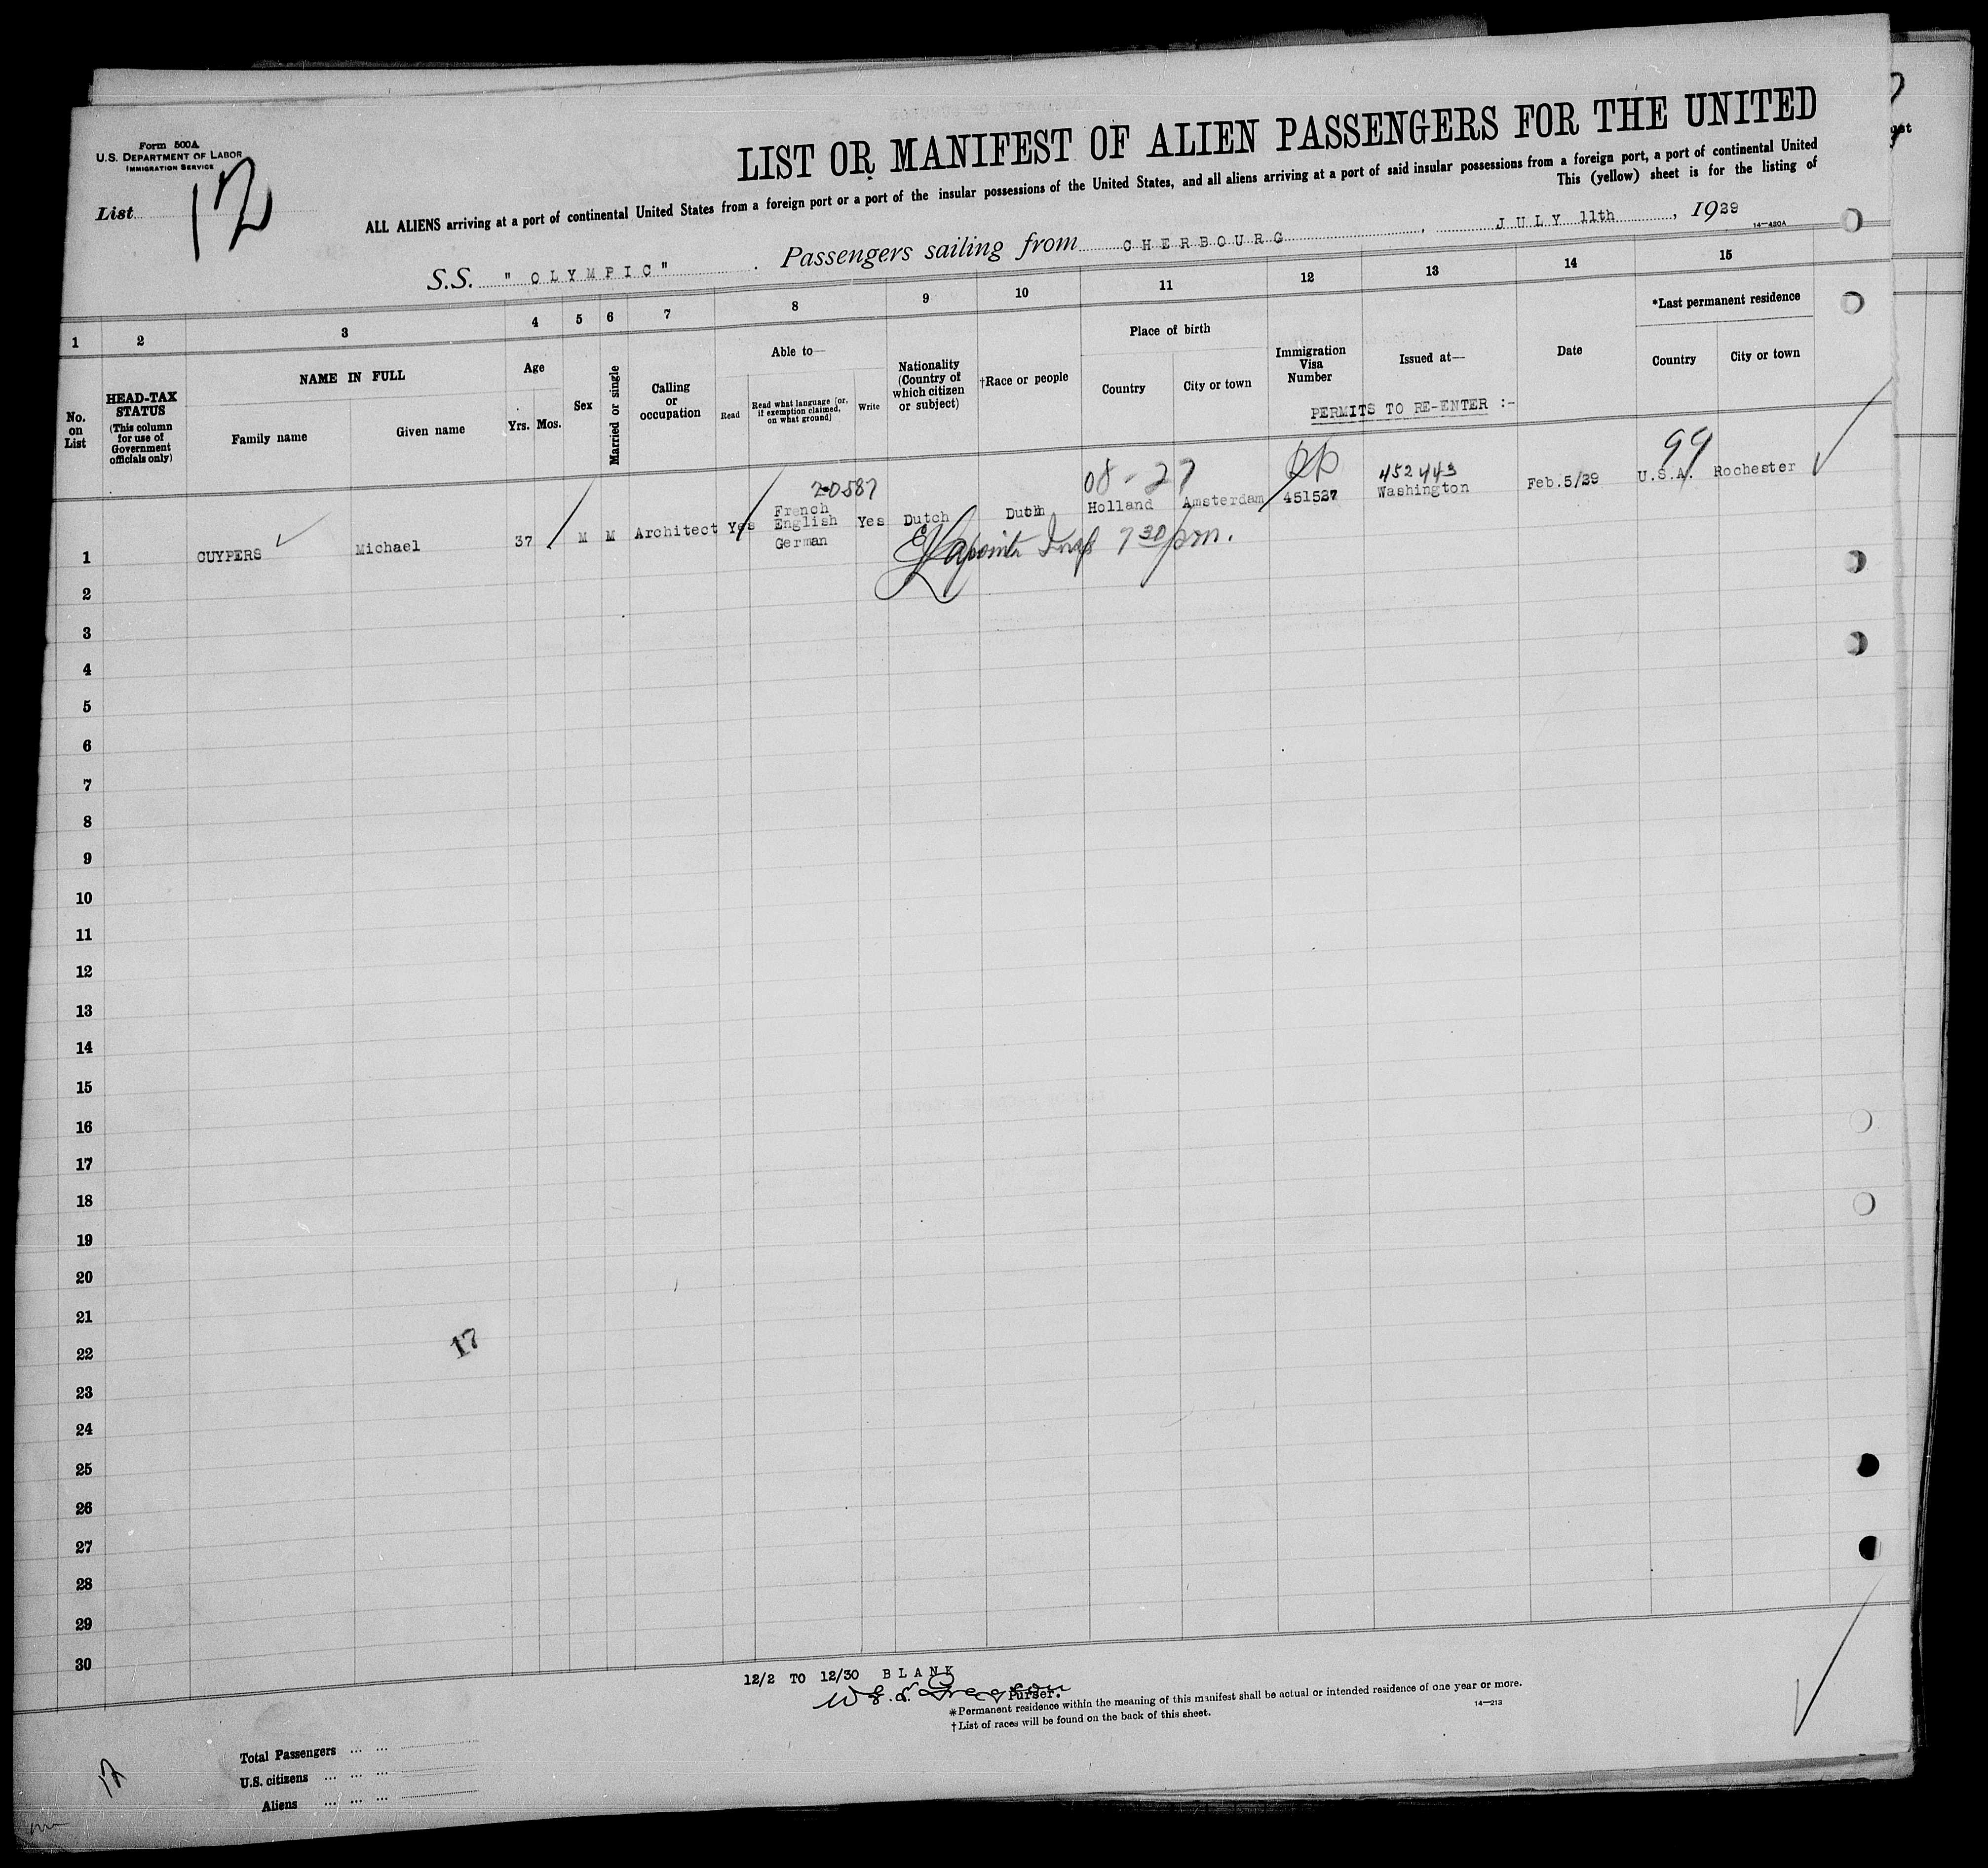 Form 500A
U.S. DEPARTMENT OF LABOR
IMMIGRATION SERVICE
List 12
LIST OR MANIFEST OF ALIEN PASSENGERS FOR THE UNITED
ALL ALIENS arriving at a port of continental United States from a foreign port or a port of the insular possessions of the United States, and all aliens arriving at a port of said insular possessions from a foreign port, a port of continental United
This (yellow) sheet is for the listing of
S.S. " OLYMPIC" . Passengers sailing from CHERBOURG , JULY 11th , 1929
14—420A
1 2 3 4 5 6 7 8 9 10 11 12 13 14 15
No. on List
HEAD-TAX STATUS
(This column for use of Government officials only)
NAME IN FULL
Family name
Given name
Age
Yrs. Mos.
Sex
Married or single
Calling or occupation
Able to—
Read
Read what language [or, if exemption claimed, on what ground]
Write
Nationality (Country of which citizen or subject)
†Race or people
Place of birth
Country
City or town
Immigration Visa Number
Issued at—
Date
*Last permanent residence
Country
City or town
PERMITS TO RE-ENTER :-
20587
08 - 27
452443
99
1 CUYPERS Michael 37 M M Architect Yes French English German Yes Dutch Dutch Holland Amsterdam 451527 Washington Feb.5/29 U.S.A. Rochester
Insp 7 30 pm.
2
3
4
5
6
7
8
9
10
11
12
13
14
15
16
17
18
19
20
21
22
17
23
24
25
26
27
28
29
30
12/2 TO 12/30 BLANK
Purser.
*Permanent residence within the meaning of this manifest shall be actual or intended residence of one year or more.
†List of races will be found on the back of this sheet.
14—213
Total Passengers ... ...
U.S. citizens ... ... ...
Aliens ... ... ...
12